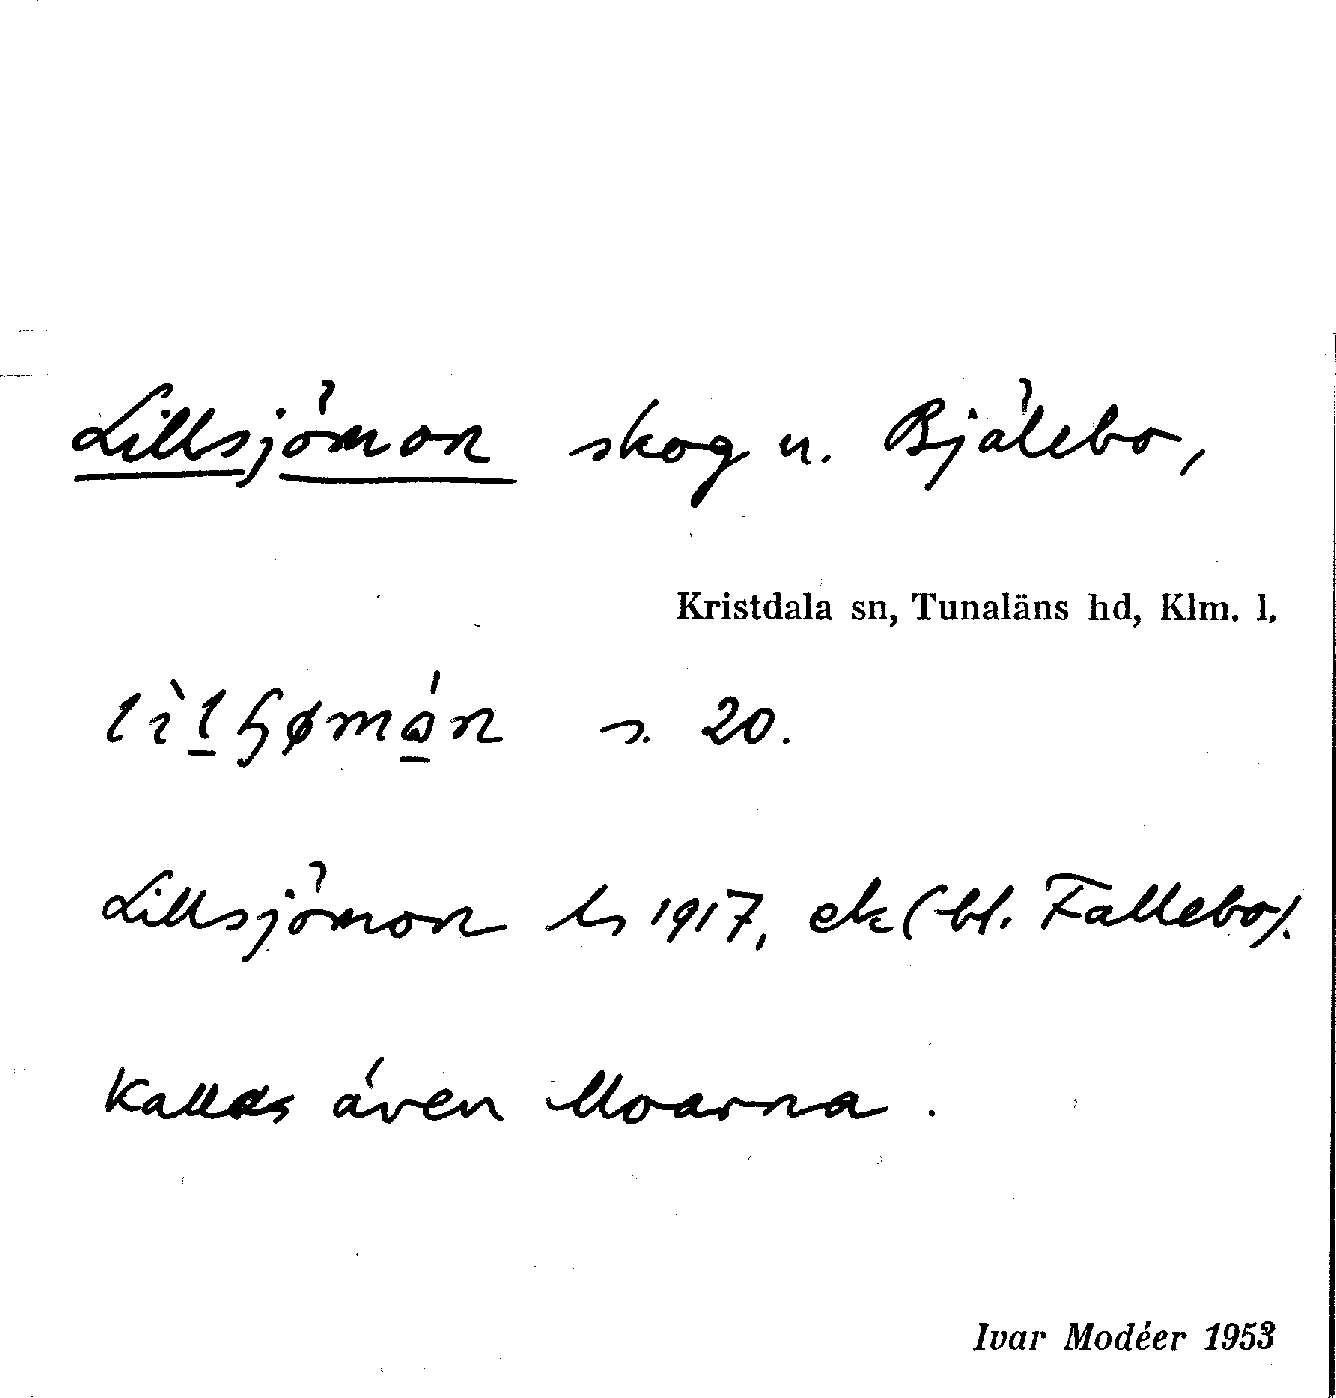 Lillsjömon skog u. Bjälebo,
Kristdala sn, Tunaläns hd, Klm. l.
s. 20.
Lillsjömon ls 1917, ek (bl. Fallebo).
Kallas även Moarna.
Ivar Modéer 1953